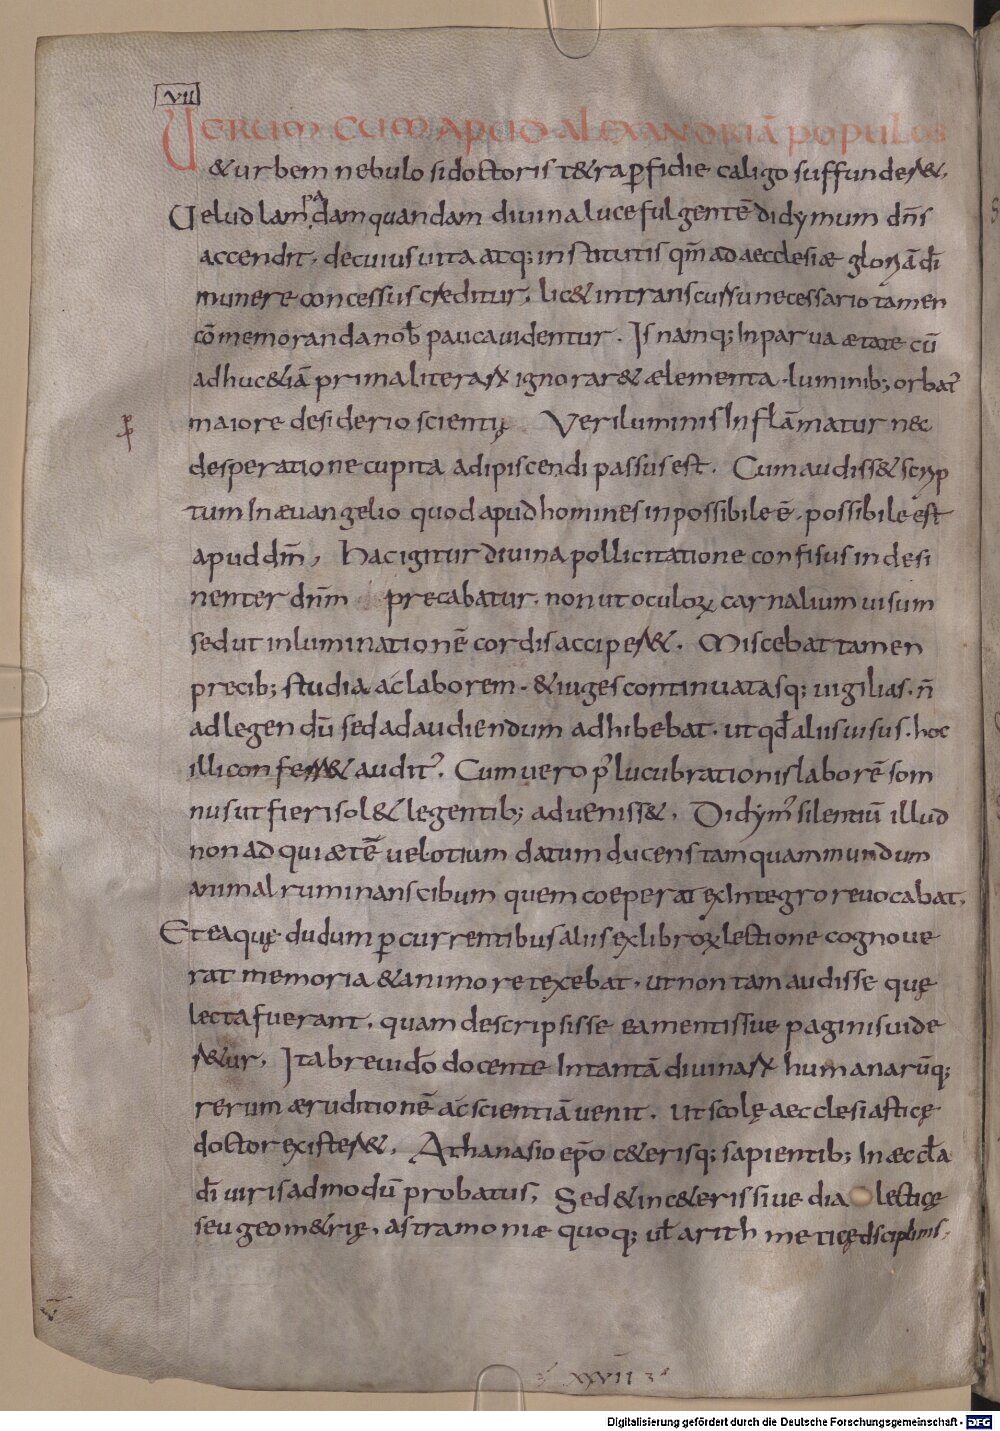 VII
UERUM CUM APUD ALEXANDRIĀ POPULOS
& urbem nebulosi doctoris t&ra pfidie caligo suffunder&,
Uelud lampadam quandam diuina luce fulgentē didymum dn̄s
accendit, de cuius uita atq; institutis qm̄ ad aecclesiæ gloriā dī
munere concessus creditur, lic& in transcursu necessario tamen
cōmemoranda nob pauca uidentur. Is namq; In parua ætate cū
adhuc &iā primaliterarū ignorar& ælementa, luminib; orbat'
maiore desiderio scientię Veri luminis Inflāmatur nec
desperatione cupita adipiscendi passus est. Cum audiss& scrip
tum In æuangelio quod apud homines inpossibile ē, possibile est
apud dm̄, Hac igitur diuina pollicitatione confisus indesi
nenter dnm̄ precabatur, non ut oculorū carnalium uisum
sed ut inluminationē cordis acciper&. Miscebat tamen
precib; studia ac laborem, & iuges continuatasq; uigilias, n̄
ad legendū sed ad audiendum adhibebat, ut qd aliis uisus, hoc
illi conferr& audit'. Cum uero p' lucubrationis laborē som
nus ut fieri sol& legentib; aduenss&, Didym' silentiū illud
non ad quiætē uel otium datum ducens tamquam mundum
animal ruminans cibum quem coeperat ex Integro reuocabat,
Et ea quę dudum pcurrentibus aliis ex librorū lectione cognoue
rat memoria & animo retexebat, ut non tam audisse quę
lecta fuerant, quam descripsisse ea mentis suæ paginis uide
r&ur, Ita breui dō docente In tantā diuinarū humanarūq;
rerum æruditionē ac scientiā uenit, ut scolę aecclesiasticę
doctor exister&, Athanasio epō c&erisq; sapientib; In æccla
dī uiris admodū probatus, Sed & in c&eris siue dialecticę
seu geom&rię, astramoniæ quoq; ul arithmeticę disciplinis,
XXVII
Digitalisierung gefördert durch die Deutsche Forschungsgemeinschaft - DFG